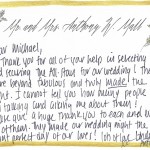 Mr. and Mrs. Anthony W. Matt
Dear Michael,
Thank you for all of your help in selecting
and securing the All-Stars for our wedding! They
were beyond fabulous and truly made the
night. I cannot tell you how many people
are talking and asking me about them!
Please give a huge thank you to each and every
of them. They made our wedding night the
most perfect day of our lives! lots of love